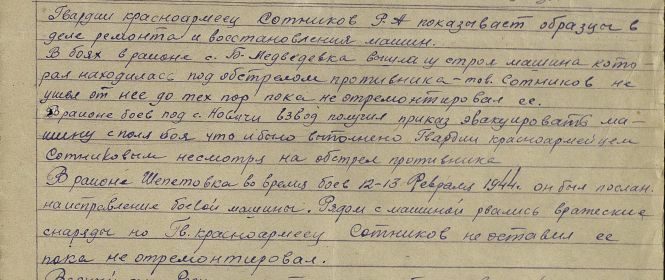 Гвардии красноармеец Сотников Р.А показывает образцы в
деле ремонта и восстановления машин.
В боях в районе с. Б-Медведевка вышла из строя машина кото-
рая находилась под обстрелом противника – тов. Сотников не
ушел от нее до тех пор пока не отремонтировал ее.
В районе боев под с. взвод получил приказ эвакуировать ма-
шину с поля боя что и было выполнено Гвардии красноармейцем
Сотниковым несмотря на обстрел противника
В районе Шепетовка во время боев 12-13 Февраля 1944г. он был послан
на исправление боевой машины. Рядом с машиной рвались вражеские
снаряды но Гв. красноармеец Сотников не оставил ее
пока не отремонтировал.